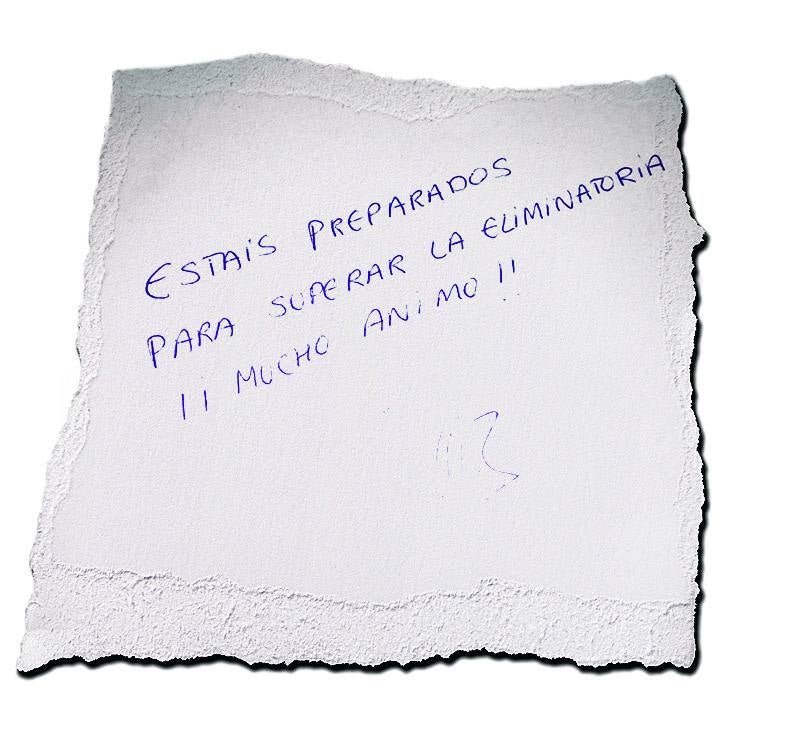 ESTAIS PREPARADOS
PARA SUPERAR LA ELIMINATORIA
¡¡ MUCHO ANIMO !!